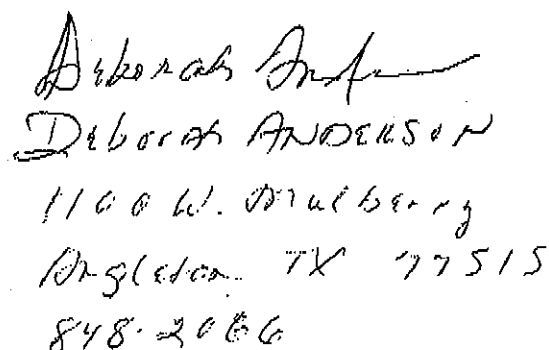 Deborah
Deborah ANDERSON
1100 W. Mulberry
Angleton TX 77515
848-2066